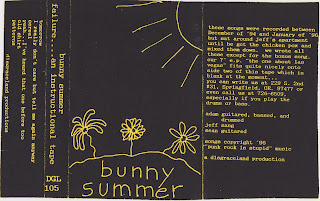 bunny summer
failure....an instructional tape
answer
i really don't care but tell me again
yeah, i've heard that one before too
old shirt
patterns
disgraceland productions
DGL
105
bunny
summer
these songs were recorded between
December of '94 and January of '96,
but sat around jeff's apartment
until he got the chicken pox and
mixed them down. we wrote all
these except for the bonus song.
our 7" e.p. "the one about las
vegas" fits quite nicely onto
side two of this tape which is
blank at the moment...
you can write us at 229 S. 3rd
#31, Springfield, OR. 97477 or
even call us at 726-6509,
especially if you play the
drums or bass.
adam guitared, bassed, and
drummed
jeff sang
sean guitared
songs copyright '96
"punk rock is stupid" music
a disgraceland production